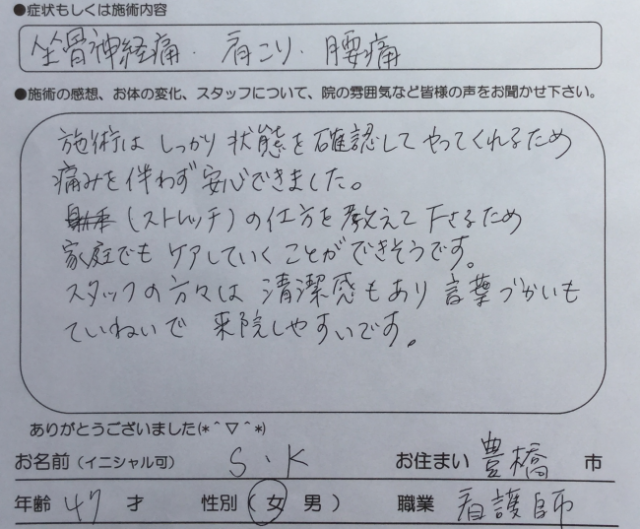 ●症状もしくは施術内容
坐骨神経痛・肩こり・腰痛
●施術の感想、お体の変化、スタッフについて、院の雰囲気など皆様の声をお聞かせ下さい。
施術は しっかり 状態を確認して やってくれるため
痛みを伴わず 安心できました。
(ストレッチ)の仕方を教えて下さるため
家庭でも ケアしていくことができそうです。
スタッフの方々は 清潔感もあり 言葉づかいも
ていねいで 来院しやすいです。
ありがとうございました(*^▽^*)
お名前(イニシャル可) S・K お住まい 豊橋 市
年齢 47 才 性別(女 男) 職業 看護師